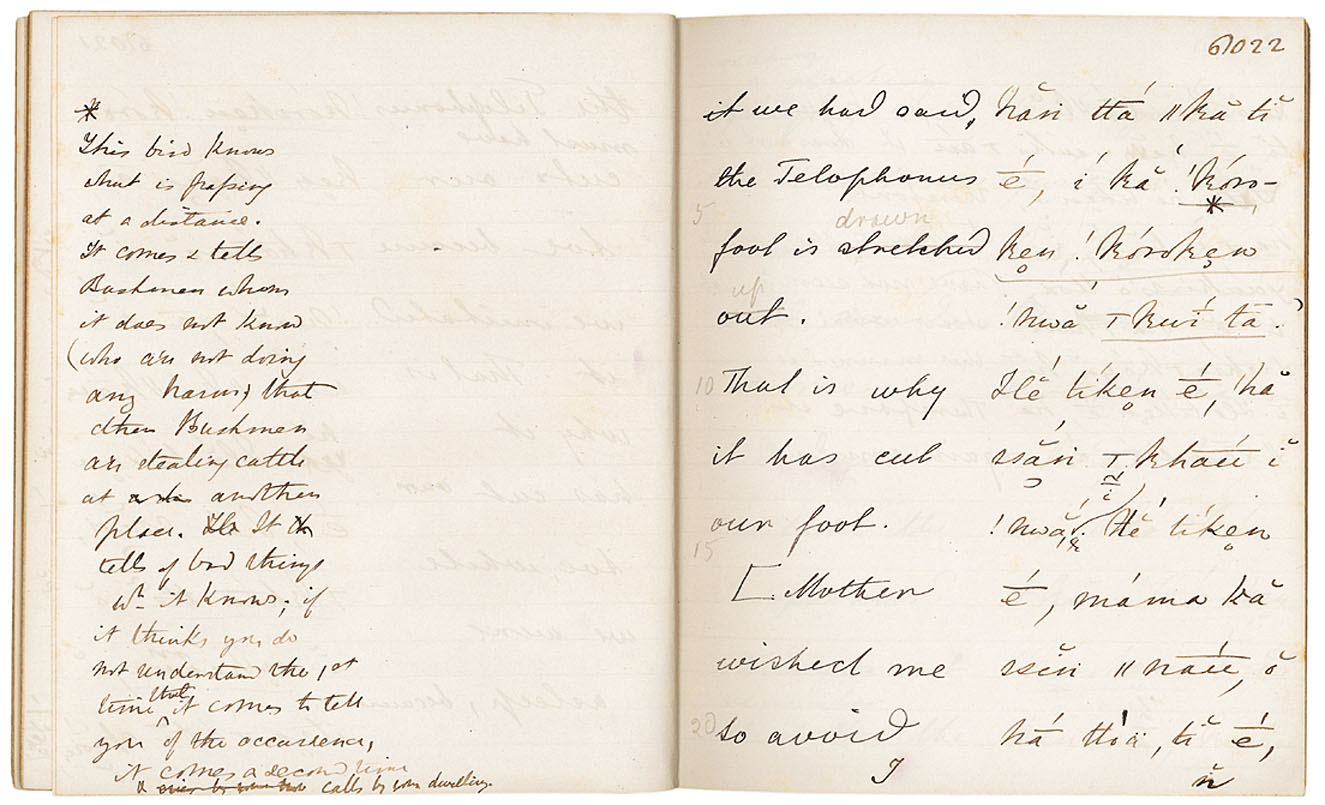 *
This bird knows
what is passing
at a distance.
It comes & tells
Bushmen whom
it does not know
(who are not doing
any harm) that
other Bushmen
are stealing cattle
at another
place. It
tells of bad things
wh. it knows; if
it thinks you do
not understand the 1st
time that it comes to tell
you of the occurrence,
it comes a second time
& calls by your dwelling.
6022
it we had said, hăn ttá ǁkă tĭ
the Telephonus é, í kă !kóro-
*
5
drawn
foot is stretched ken !kóroken
up
out. !nwā kwí ta.
10 That is why Hĕ tíken é, hă
it has cut ssăn kháu ĭ
our foot. !nwā. Hĕ tíken
15
[Mother é, máma kă
wished me ssĭn ǁnáu, ŏ
20 to avoid há ttóä, tĭ é,
I n